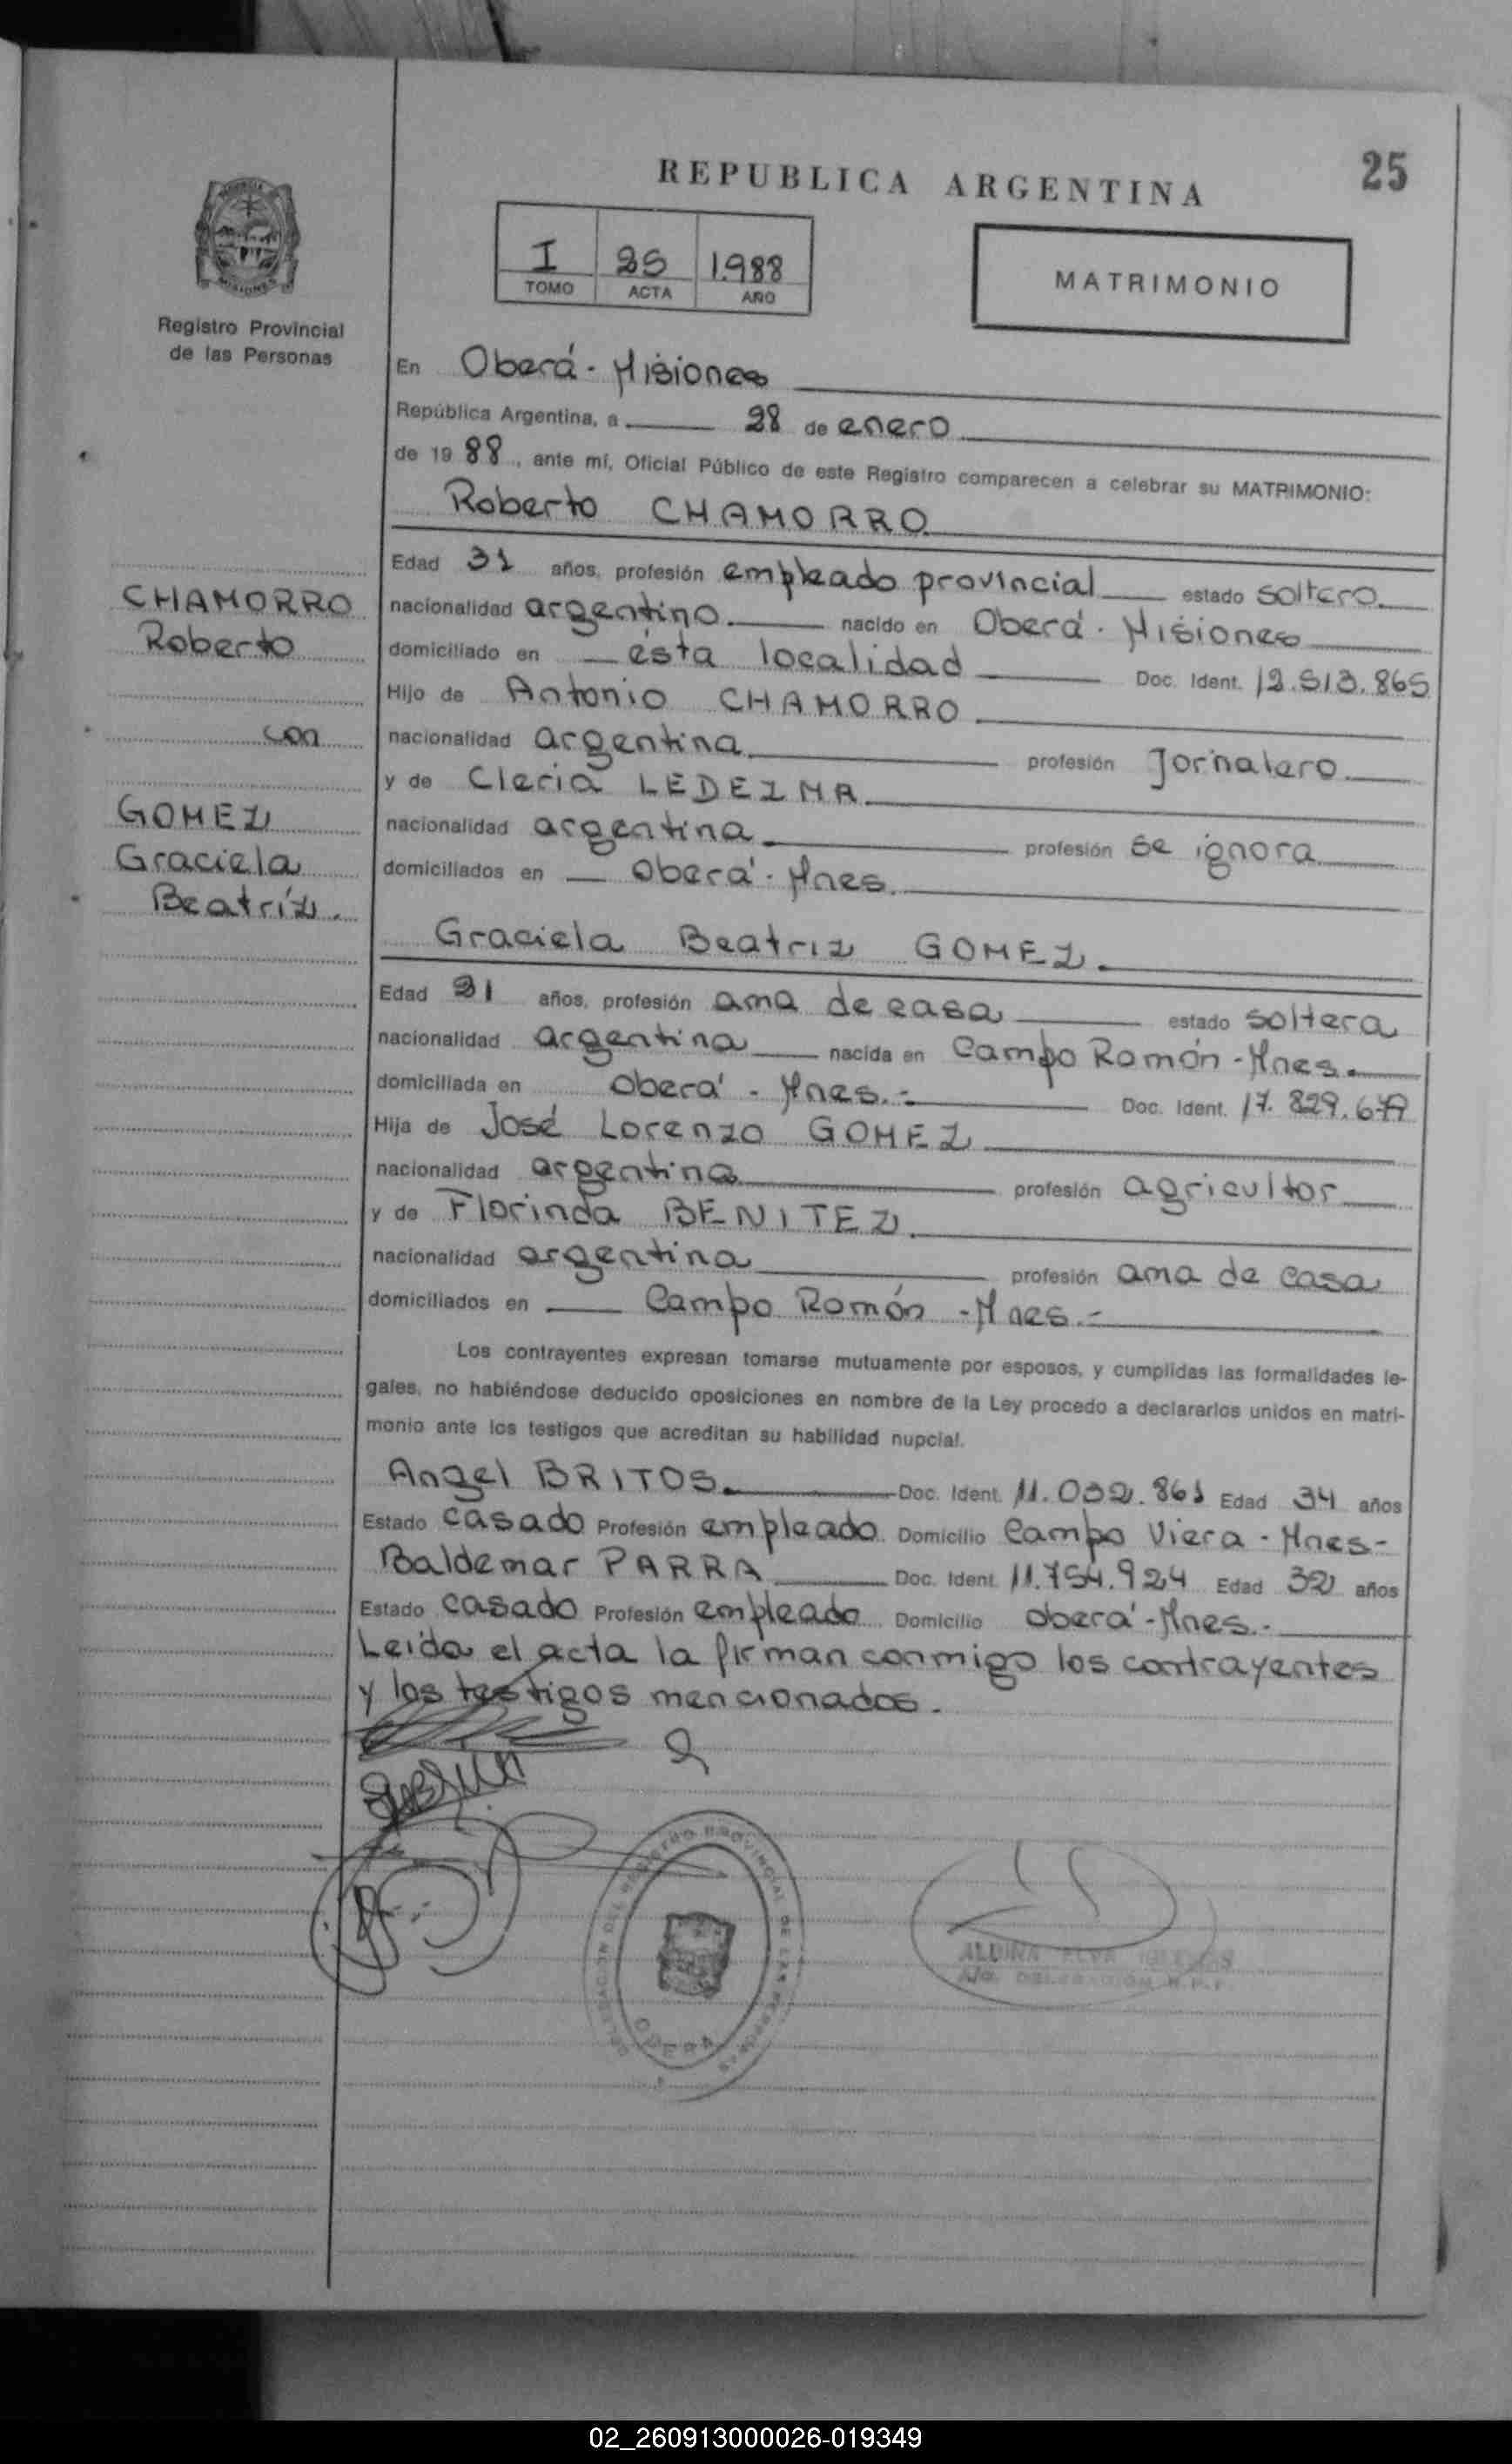 REPUBLICA ARGENTINA
25
I 25 1.988
TOMO ACTA AÑO
MATRIMONIO
Registro Provincial
de las Personas
En Oberá - Misiones
República Argentina, a 28 de enero
de 19 88, ante mí, Oficial Público de este Registro comparecen a celebrar su MATRIMONIO:
Roberto CHAMORRO
Edad 31 años, profesión empleado provincial estado soltero
nacionalidad argentino nacido en Oberá - Misiones
domiciliado en ésta localidad Doc. Ident. 12.513.865
Hijo de Antonio CHAMORRO
nacionalidad argentina profesión Jornalero
y de Cleria LEDEZMA
nacionalidad argentina profesión se ignora
domiciliados en Oberá - Mnes.
CHAMORRO
Roberto
con
GOMEZ
Graciela
Beatríz.
Graciela Beatriz GOMEZ
Edad 21 años, profesión ama de casa estado soltera
nacionalidad argentina nacida en Campo Ramón - Mnes.
domiciliada en Oberá - Mnes.- Doc. Ident. 17.829.679
Hija de José Lorenzo GOMEZ
nacionalidad argentina profesión agricultor
y de Florinda BENITEZ
nacionalidad argentina profesión ama de casa
domiciliados en Campo Ramón - Mnes.-
Los contrayentes expresan tomarse mutuamente por esposos, y cumplidas las formalidades le-
gales, no habiéndose deducido oposiciones en nombre de la Ley procedo a declararlos unidos en matri-
monio ante los testigos que acreditan su habilidad nupcial.
Angel BRITOS Doc. Ident. 11.032.861 Edad 34 años
Estado casado Profesión empleado Domicilio Campo Viera - Mnes-
Baldemar PARRA Doc. Ident. 11.754.924 Edad 32 años
Estado casado Profesión empleado Domicilio Oberá - Mnes.-
Leída el acta la firman conmigo los contrayentes
y los testigos mencionados.
DELEGACION DEL REGISTRO PROVINCIAL DE LAS PERSONAS
OBERA
02_260913000026-019349